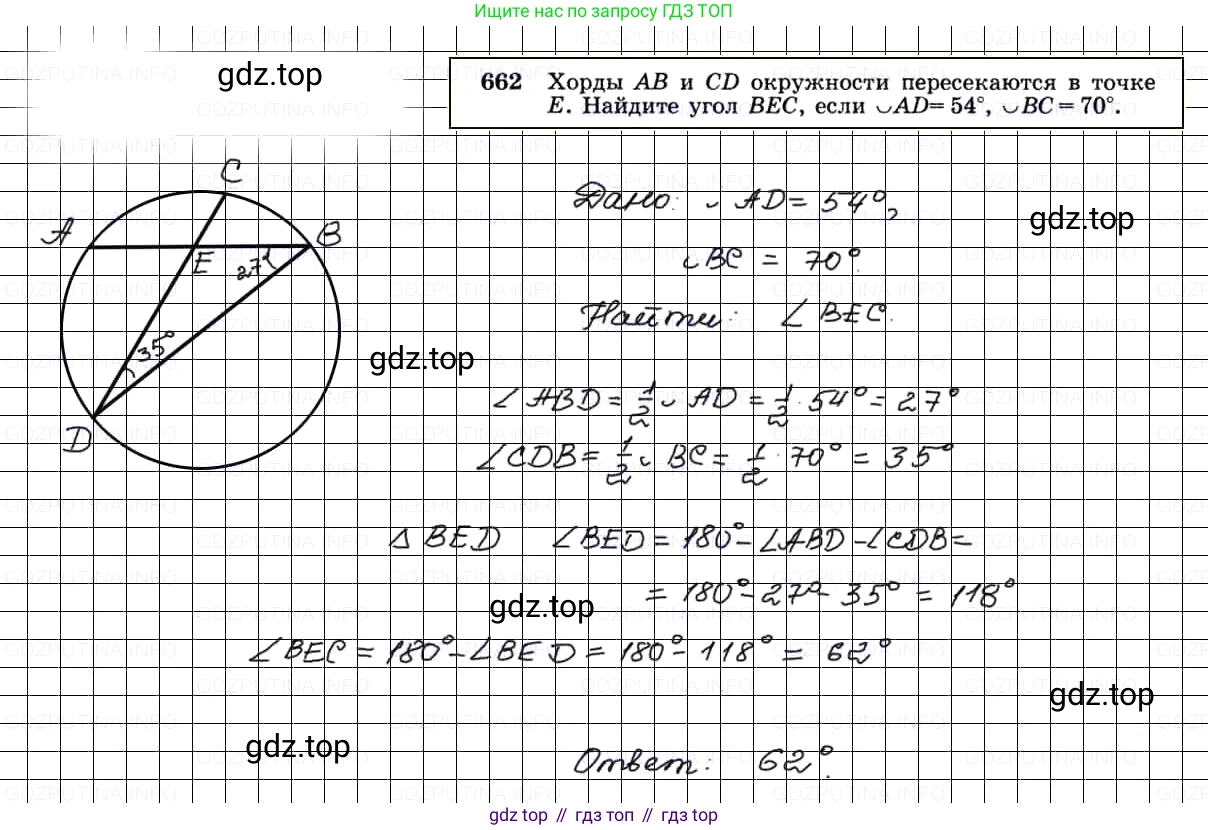 Ищите нас по запросу ГДЗ ТОП
gdz.top
662 Хорды AB и CD окружности пересекаются в точке
E. Найдите угол BEC, если ◡AD = 54°, ◡BC = 70°.
C
A
B
E
27°
35°
D
Дано: ◡ AD = 54°,
gdz.top
◡BC = 70°.
Найти: ∠ BEC.
gdz.top
∠ ABD = 1/2 ◡ AD = 1/2 · 54° = 27°
∠CDB = 1/2 ◡ BC = 1/2 · 70° = 35°
△ BED ∠BED = 180° - ∠ABD - ∠CDB =
= 180° - 27° - 35° = 118°
gdz.top
∠BEC = 180° - ∠BED = 180° - 118° = 62°
gdz.top
gdz.top
Ответ: 62°.
gdz top // гдз топ // гдз top
GDZPUTINA.INFO